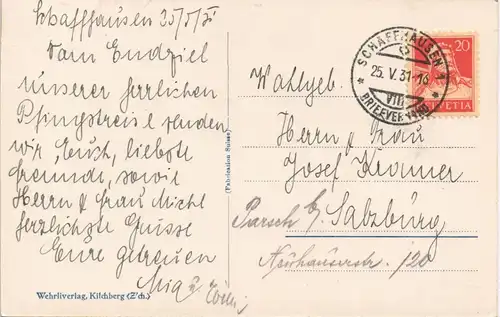 Schaffhausen 25/5/31
Vom Endziel
unserer herrlichen
Pfingstreise senden
wir Euch, liebste
Freunde, sowie
Herrn & Frau Michl
herzlichste Grüsse
Eure getreuen
Wehrliverlag, Kilchberg (Z'ch.)
(Fabrication Suisse)
SCHAFFHAUSEN 1
25. V. 31-16
VIII
BRIEFVERSAND
20
HELVETIA
Wahlgeb.
Herrn & Frau
Josef Kronner
Parsch b/ Salzburg
Neuhauserstr. 120